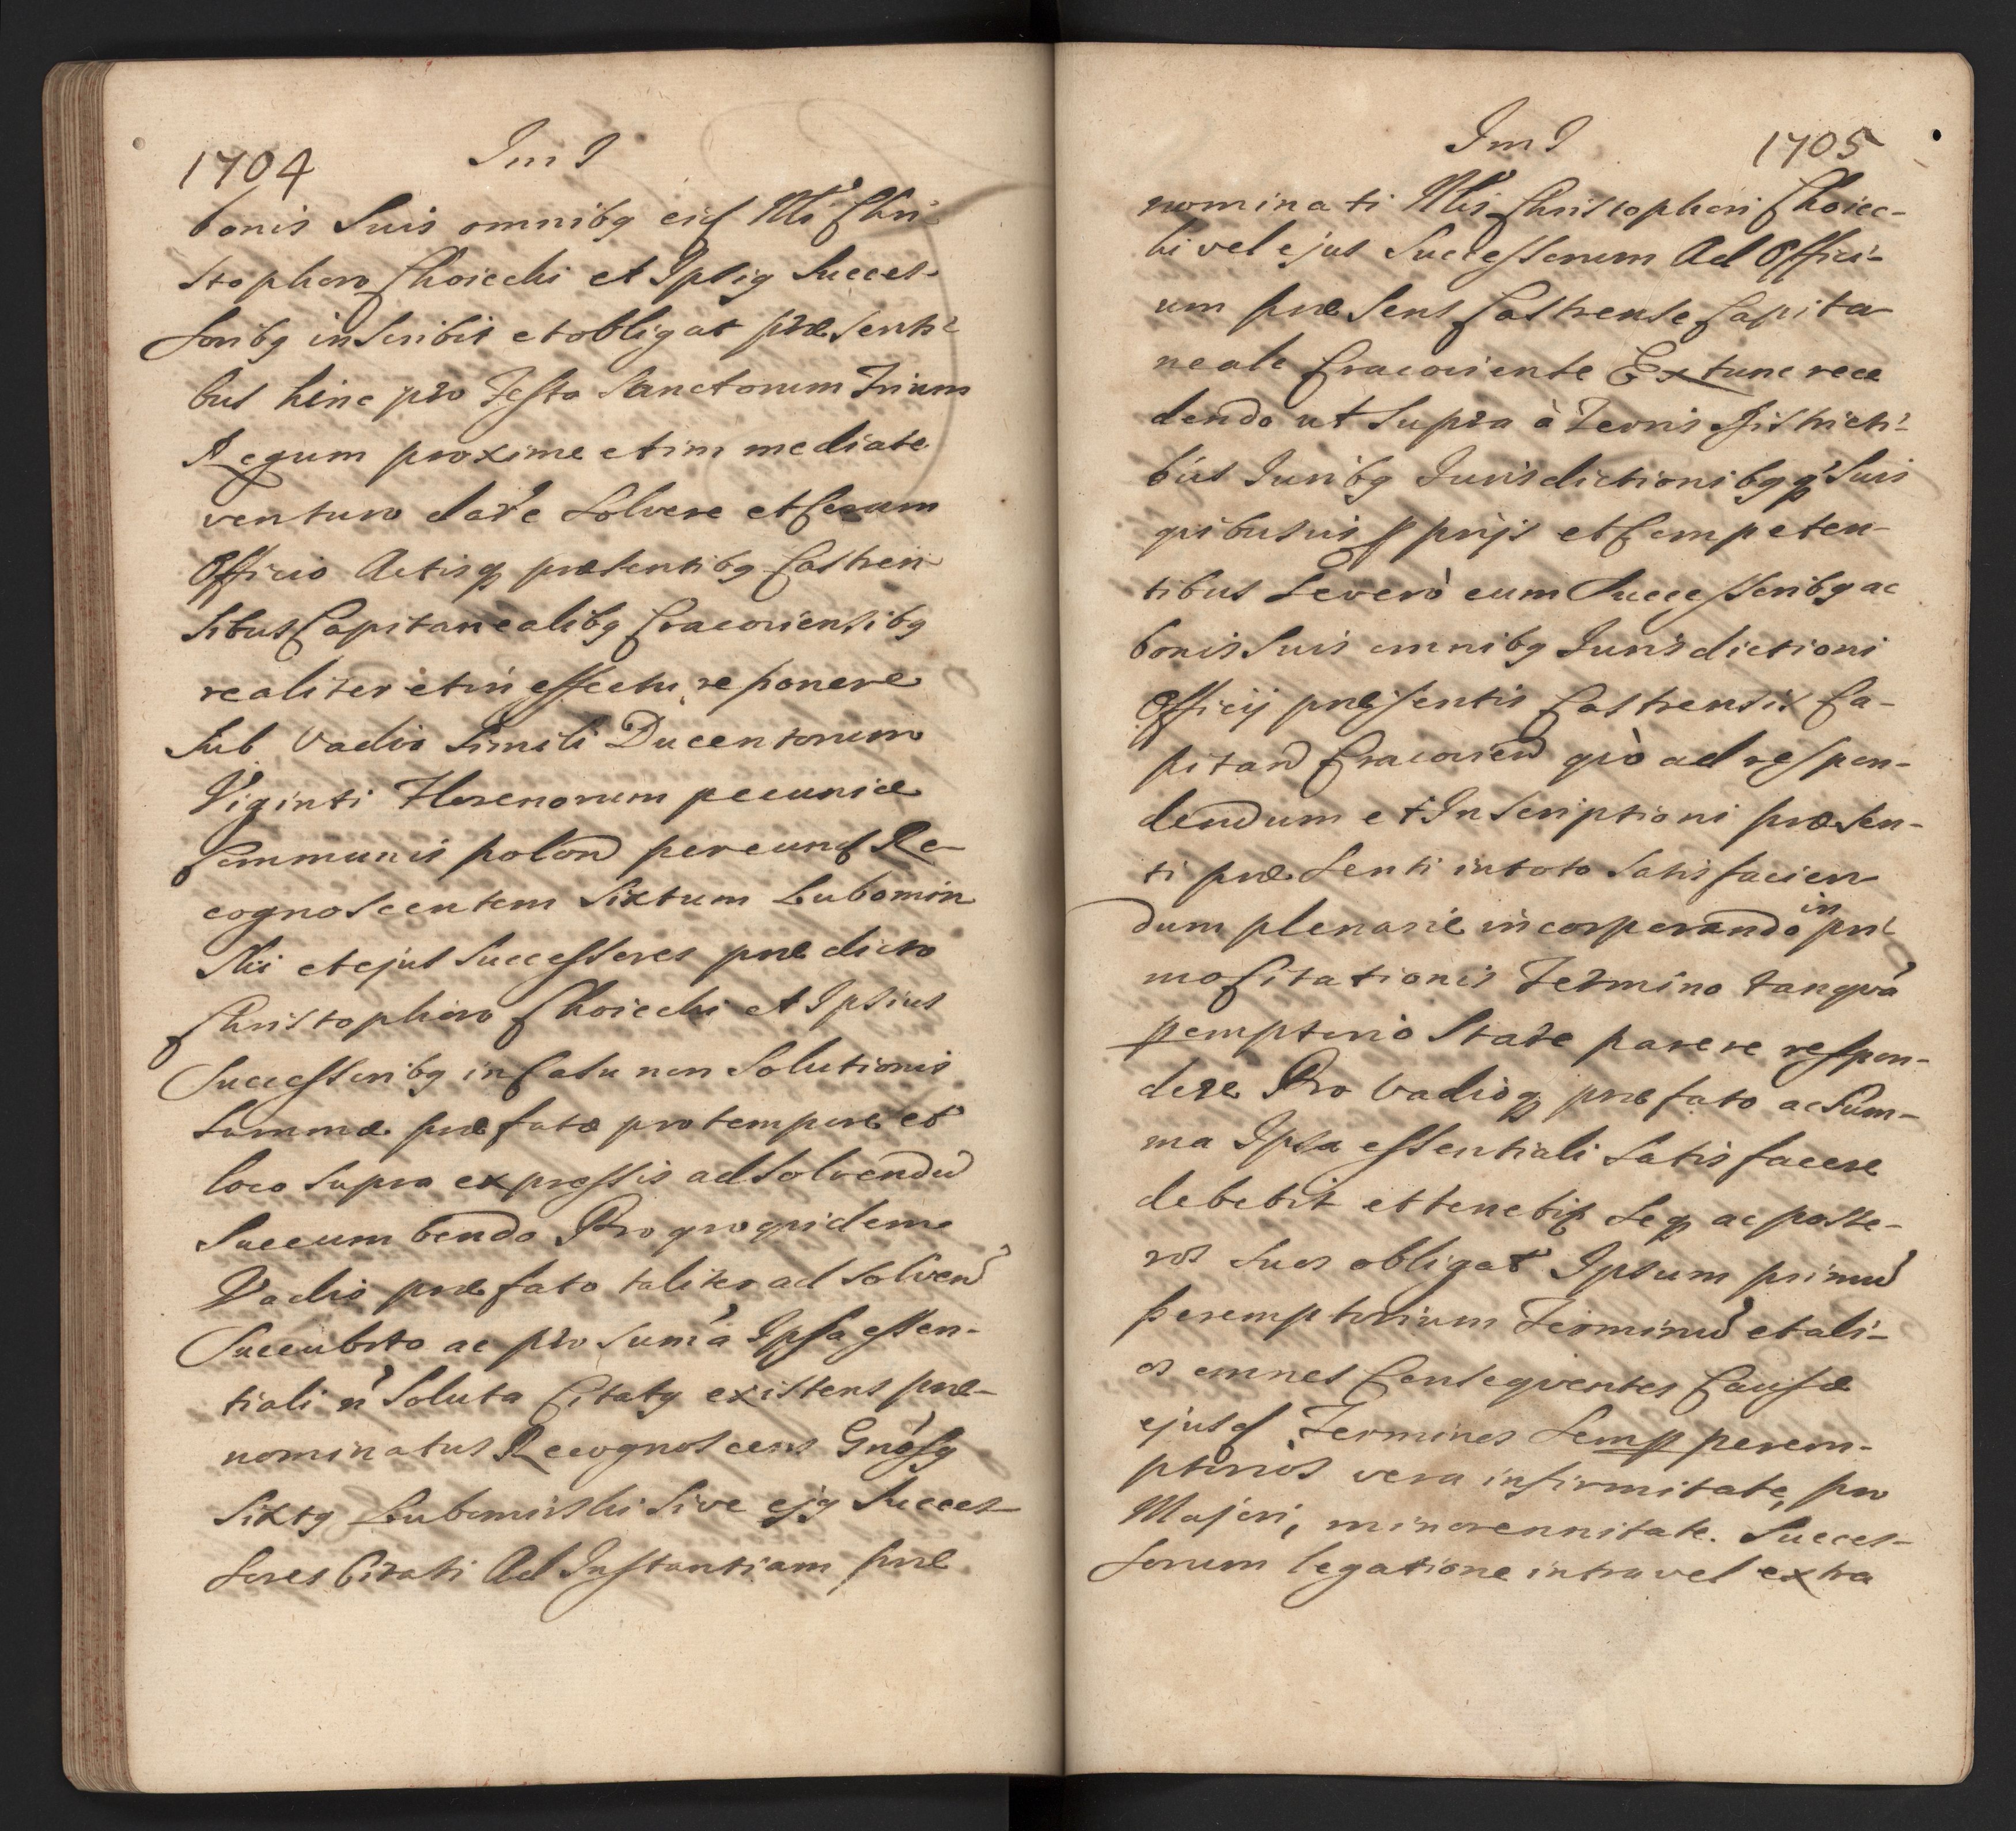 1704
Im I
bonis Suis omnibq eid Mci Chri-
stophoro Choiecki et Ipsiq Succes-
soribq inscribit et obligat præsenti-
bus hinc pro Festo Sanctorum Trium
Regum proxime et immediate
venturo dare Solvere et Coram
Officio Actisq præsentibq Castren-
sibus Capitanealibq Cracoviensibq
realiter et in effectu reponere
Sub Vadio Simili Ducentorum
Viginti Florenorum pecuniæ
Communis polon per eund Re-
cognoscentem Sixtum Lubomir-
ski et ejus Successores prædicto
Christophoro Choiecki et Ipsius
Successoribq in Casu non Solutionis
Summæ præfatæ pro tempore et
loco Supra expressis ad Solvendu
Succumbendo Pro quo quidem
Vadio præfato taliter ad Solvend
Succubito ac pro Suma Ipsa essen-
tiali n Soluta Citatq existens præ-
nominatus Recognoscens Gnosq
Sixtq Lubomirski Sive ejq Succes-
sores Citati Ad Instantiam præ
Im I
1705
nominati Christophori Choiec-
ki vel ejus Successorum Ad Offici-
um præsens Castrense Capita
neale Cracoviense Ex tunc rece
dendo ut Supra à Terris Districti-
bus Juribq Jurisdictionibqq Suis
quibusvis pprijs et Competen-
tibus Se vero cum Successoribq ac
bonis Suis omnibq Jurisdictioni
Officij præsentis Castrensis Ca-
pitan Cracovien quò ad respon-
dendum et Inscriptioni præsen-
ti præsenti in toto Satisfacien
dum plenarie incorporando in pri
mo Citationis Termino tanqva
pemptorio Stare parere respon-
dere Pro Vadioq præfato ac Sum-
ma Ipsa essentiali Satisfacere
debebit et tenebit Seq ac poste-
ros Suos obligat Ipsum primu
peremptorium Terminu et ali-
os omnes Conseqventes Causæ
ejusd Terminos Semp perem-
ptorios vera infirmitate, pro
Majori, minorennitate. Succes-
sorum legatione intra vel extra